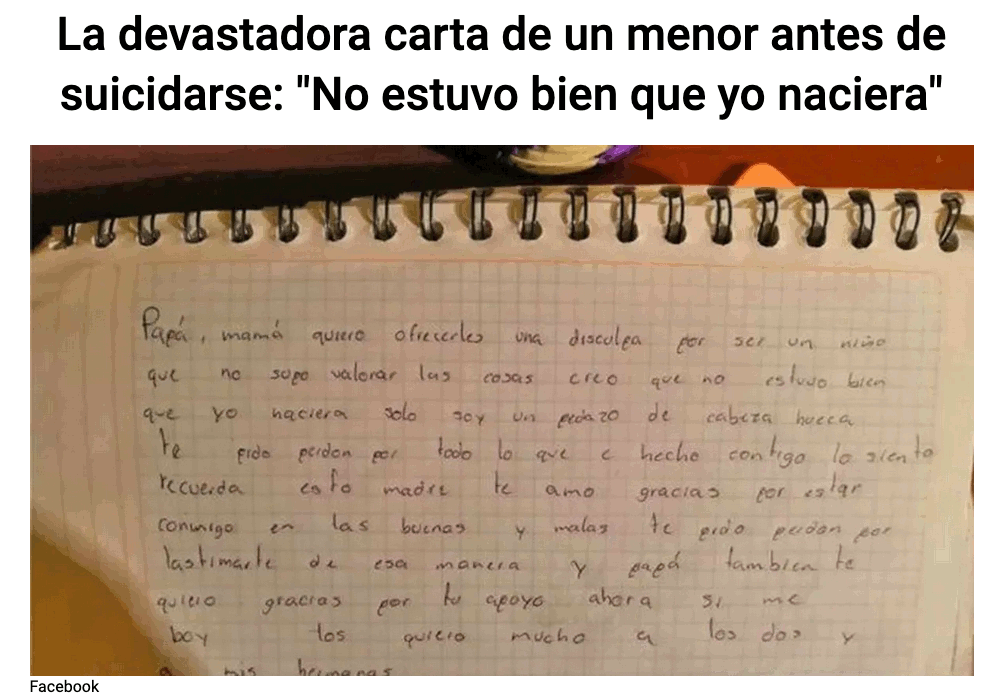 La devastadora carta de un menor antes de
suicidarse: "No estuvo bien que yo naciera"
Papá, mamá quiero ofrecerles una disculpa por ser un niño
que no supo valorar las cosas creo que no estuvo bien
que yo naciera solo soy un pedazo de cabeza hueca
te pido perdon por todo lo que e hecho contigo lo siento
recuerda esto madre te amo gracias por estar
conmigo en las buenas y malas te pido perdon por
lastimarte de esa manera y papá tambien te
quiero gracias por tu apoyo ahora si me
boy los quiero mucho a los dos y
a mis hermanas
Facebook